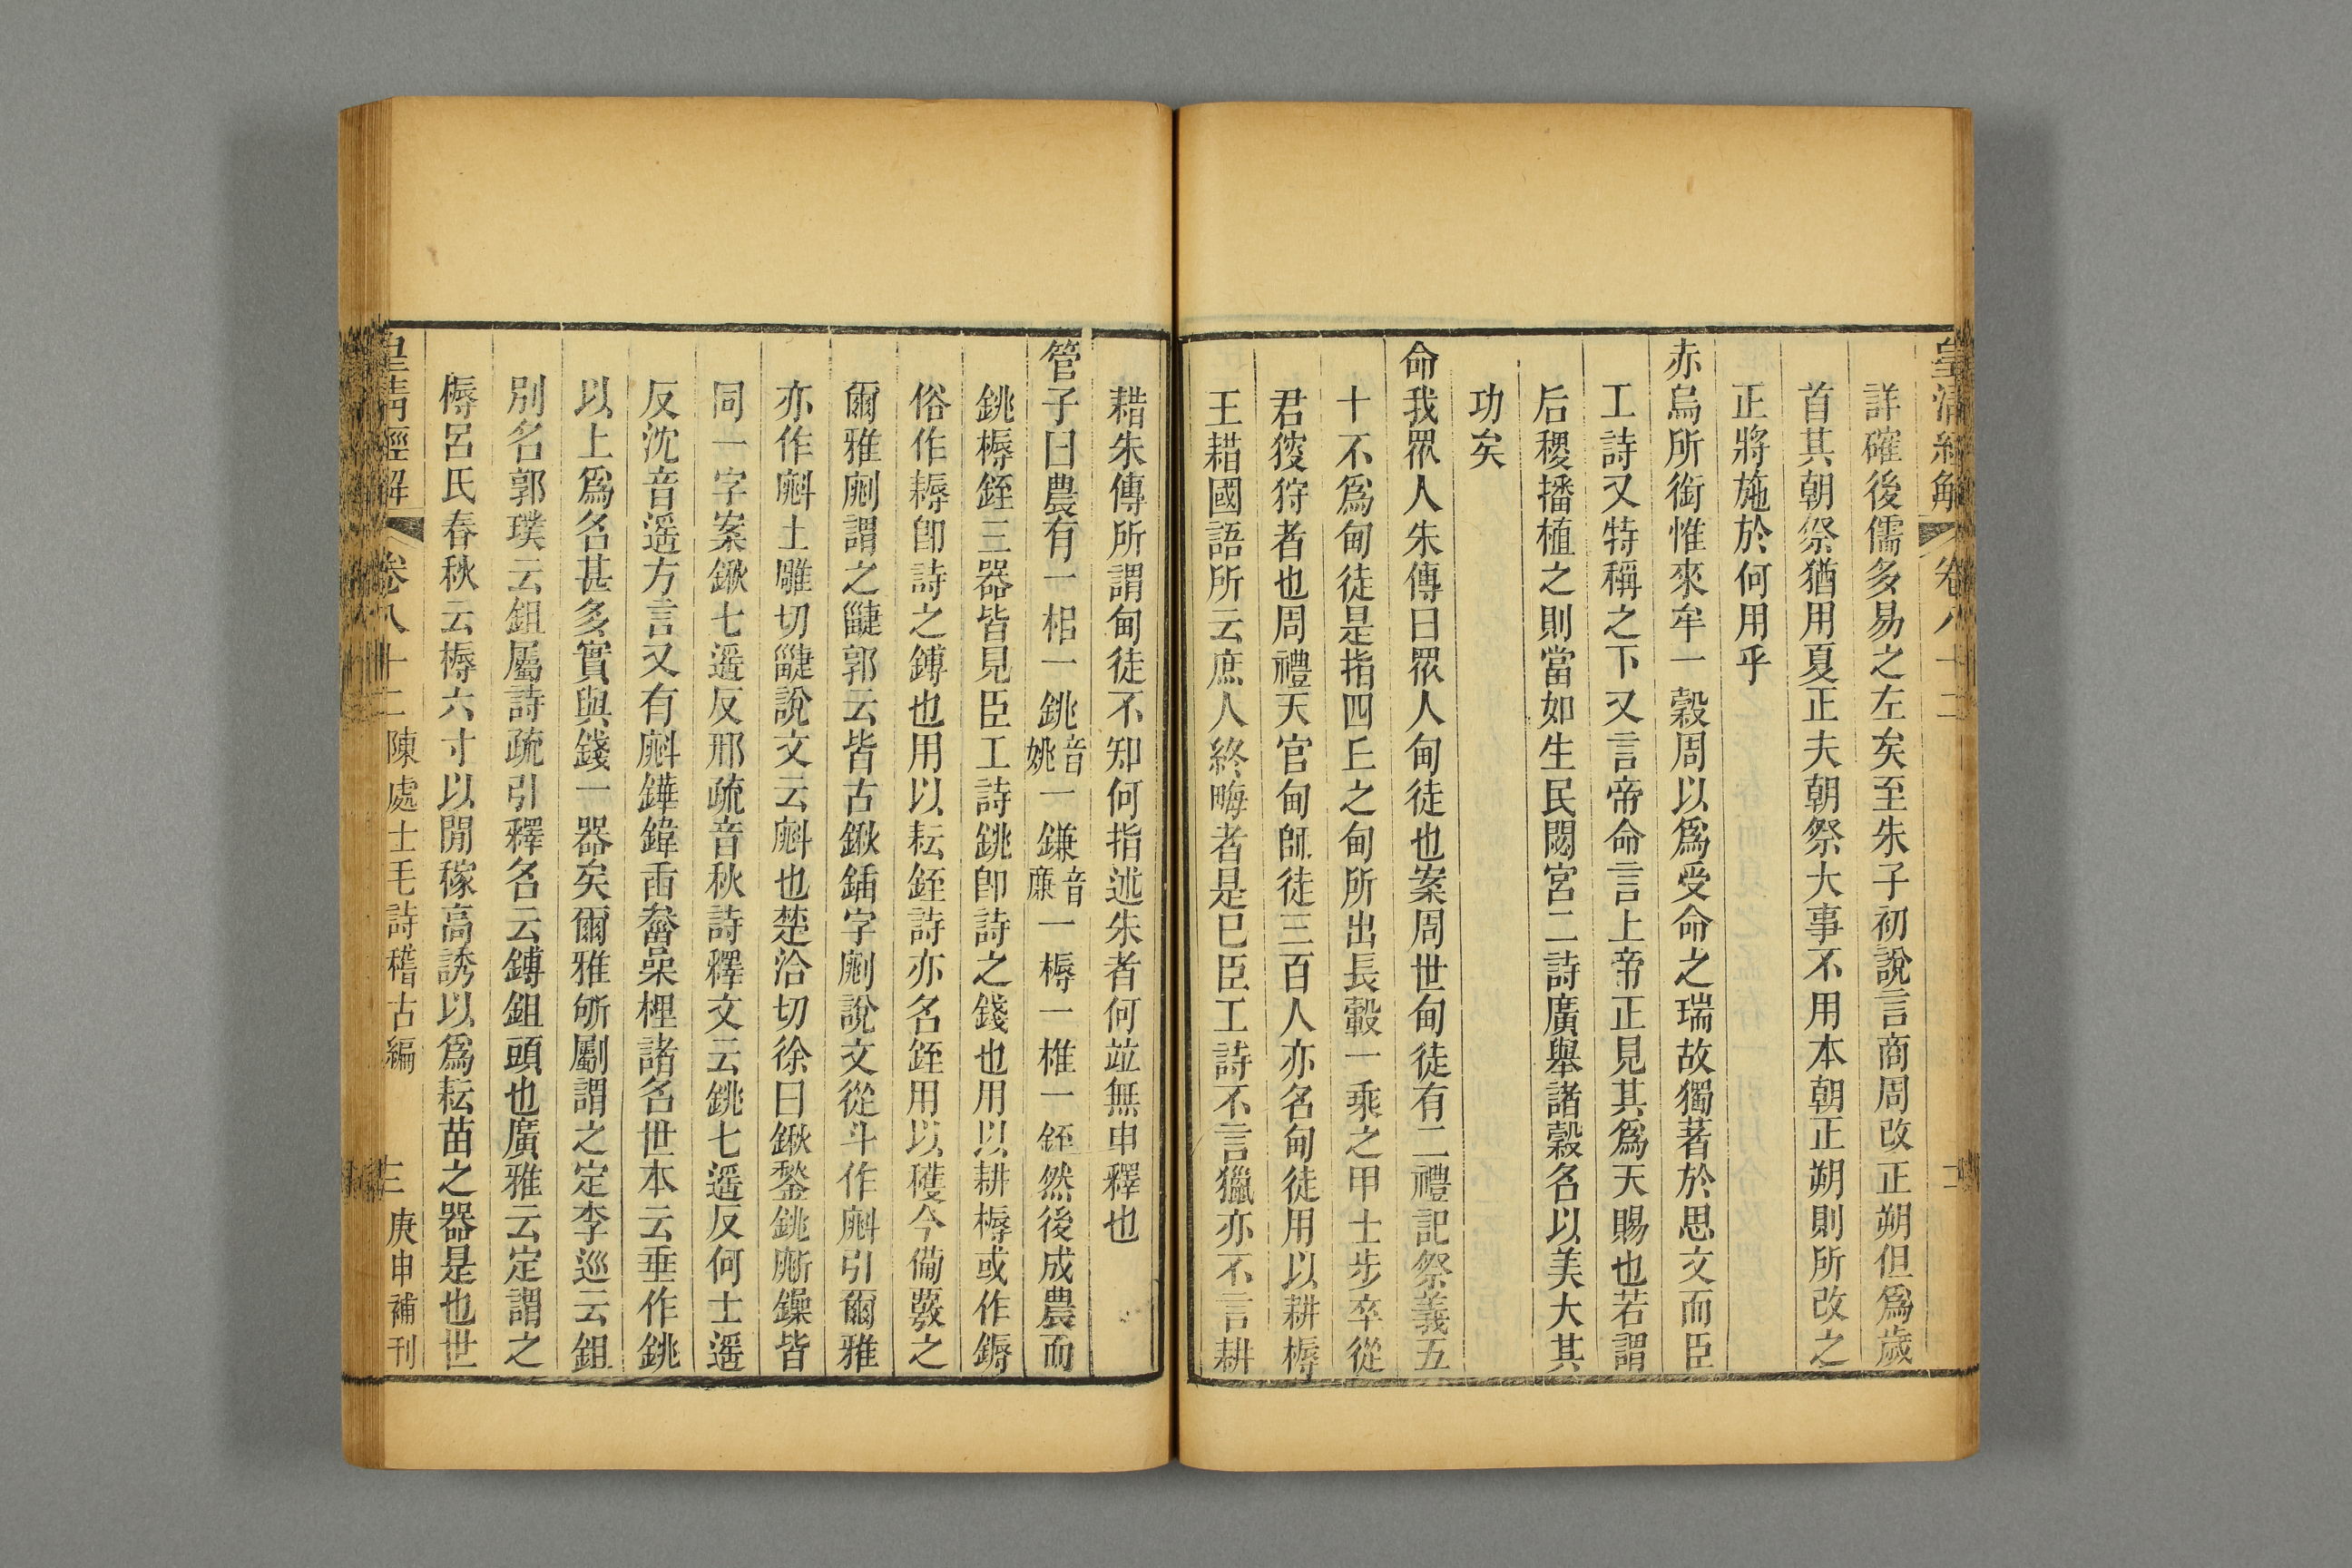 皇清經解 卷八十二 二
詳確後儒多易之左矣至朱子初說言商周改正朔但爲歲
首其朝祭猶用夏正夫朝祭大事不用本朝正朔則所改之
正將施於何用乎
赤烏所銜惟來牟一穀周以爲受命之瑞故獨著於思文而臣
工詩又特稱之下又言帝命言上帝正見其爲天賜也若謂
后稷播植之則當如生民閟宮二詩廣舉諸穀名以美大其
功矣
命我眾人朱傳曰眾人甸徒也案周世甸徒有二禮記祭義五
十不爲甸徒是指四丘之甸所出長轂一乘之甲士步卒從
君狻狩者也周禮天官甸師徒三百人亦名甸徒用以耕耨
王耤國語所云庶人終畮者是巳臣工詩不言獵亦不言耕
耤朱傳所謂甸徒不知何指述朱者何竝無申釋也
管子曰農有一耜一銚音姚一鎌音廉一槈一椎一銍然後成農而
銚槈銍三器皆見臣工詩銚卽詩之錢也用以耕槈或作鎒
俗作耨卽詩之鎛也用以耘銍詩亦名銍用以穫今備覈之
爾雅㓵謂之疀郭云皆古鍬鍤字㓵說文從斗作㪺引爾雅
亦作㪺土雕切疀說文云㪺也楚洽切徐曰鍬鍫銚㪺鐰皆
同一字案鍬七遥反邢疏音秋詩釋文云銚七遥反何士遥
反沈音遥方言又有㪺鏵鍏臿畚喿梩諸名世本云垂作銚
以上爲名甚多實與錢一器矣爾雅斪斸謂之定李巡云鉏
別名郭璞云鉏屬詩疏引釋名云鎛鉏頭也廣雅云定謂之
槈呂氏春秋云槈六寸以閒稼高誘以爲耘苗之器是也世
皇清經解 卷八十二 陳處士毛詩稽古編 三 庚申補刊